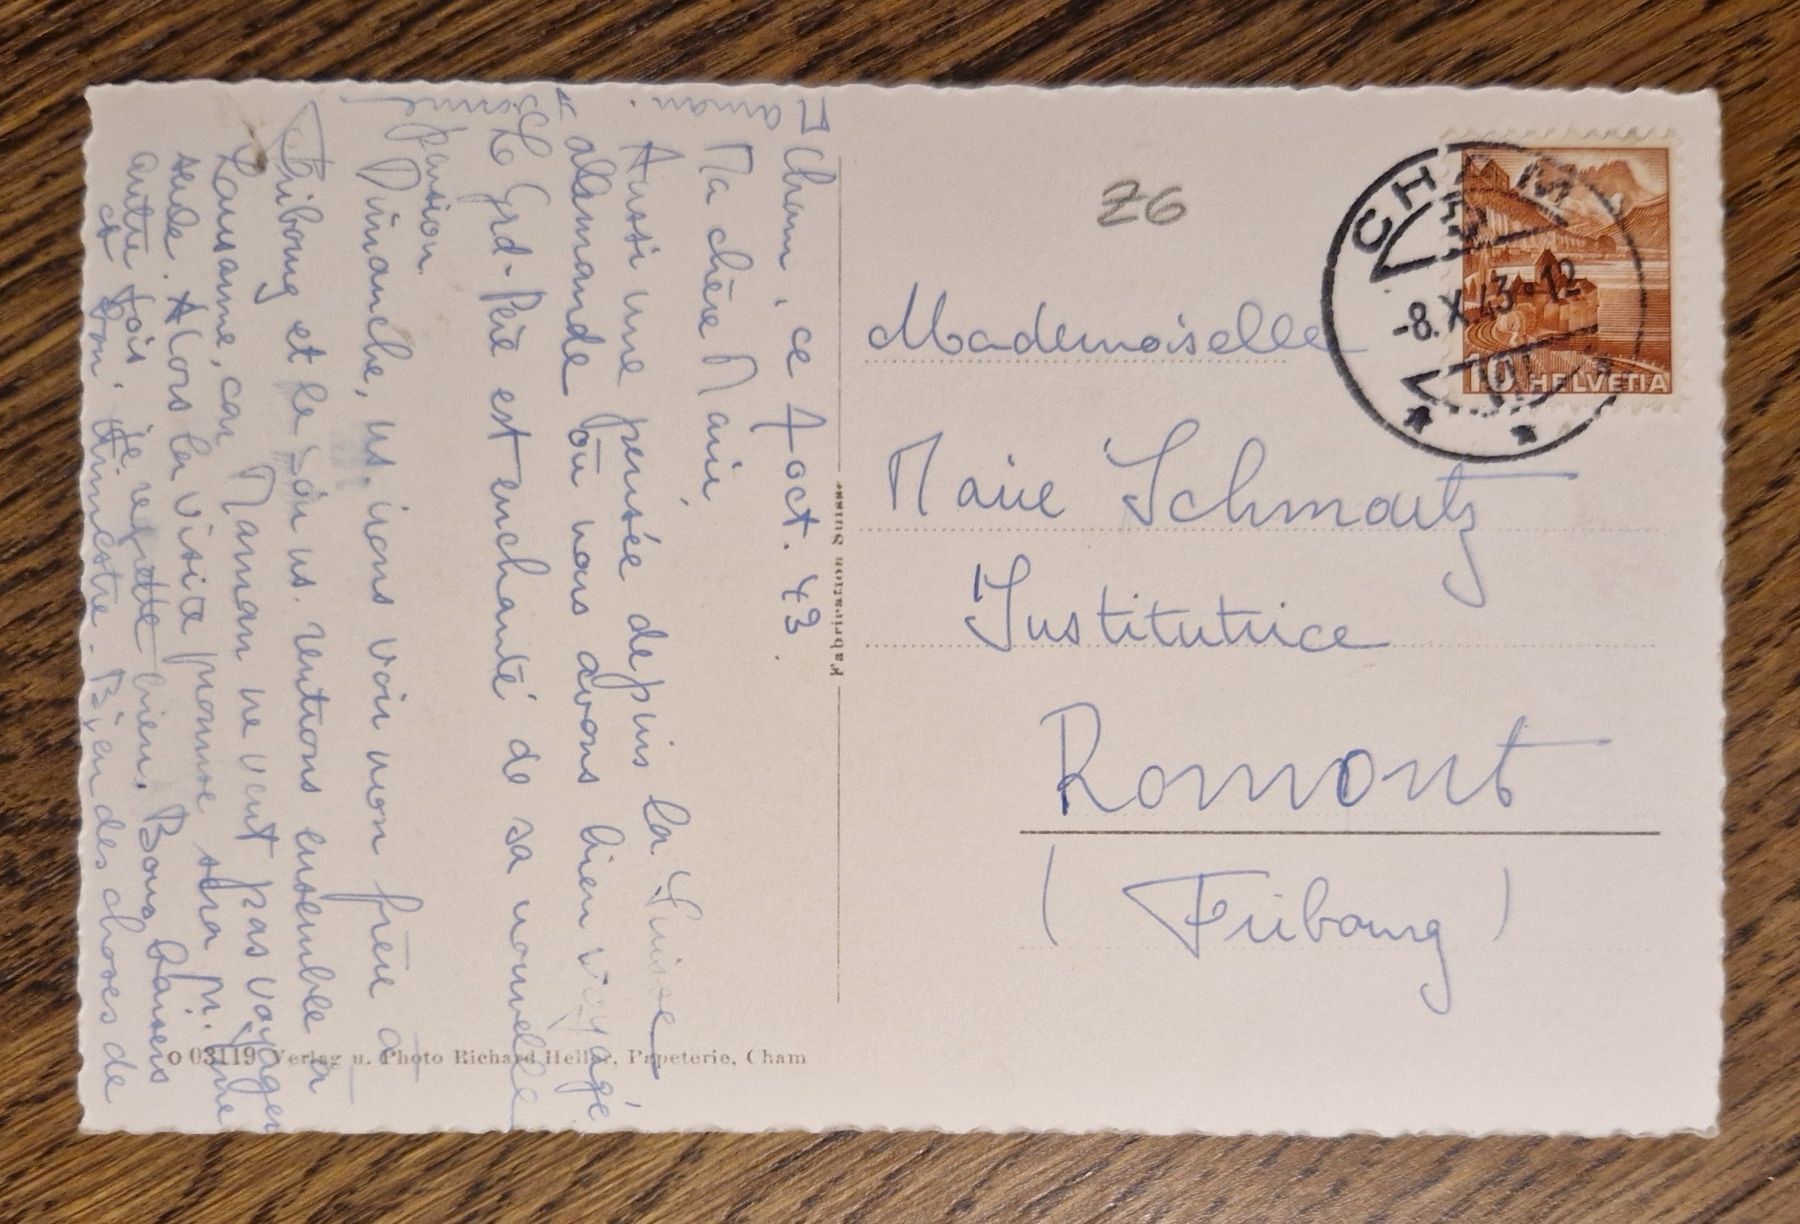 Cham, ce 7 oct. 43.
Ma chère Marie,
Aussi une pensée depuis la Suisse
allemande où nous avons bien voyagé.
Le Grd-Père est enchanté de sa nouvelle
pension.
Dimanche, ns. irons voir mon frère à
Fribourg et le soir ns. rentrons ensemble à
Lausanne, car Maman ne veut pas voyager
seule. Alors la visite promise sera pr. une
autre fois, je regrette bien. Bons baisers
et bon trimestre. Bien des choses de
Fabrication Suisse
o 03119 Verlag u. Photo Richard Heller, Papeterie, Cham
Z6
CHAM
-8.X.43-12
10 HELVETIA
Mademoiselle
Marie Schmoutz
Institutrice
Romont
(Fribourg)